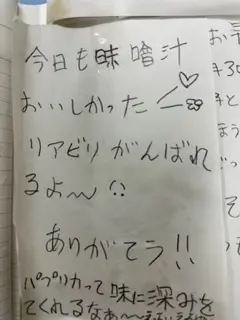 今日も味噌汁
おいしかった
リアビリがんばれ
るよ〜
ありがてう!!
パプリカって味に深みを
てくれるなぁ〜